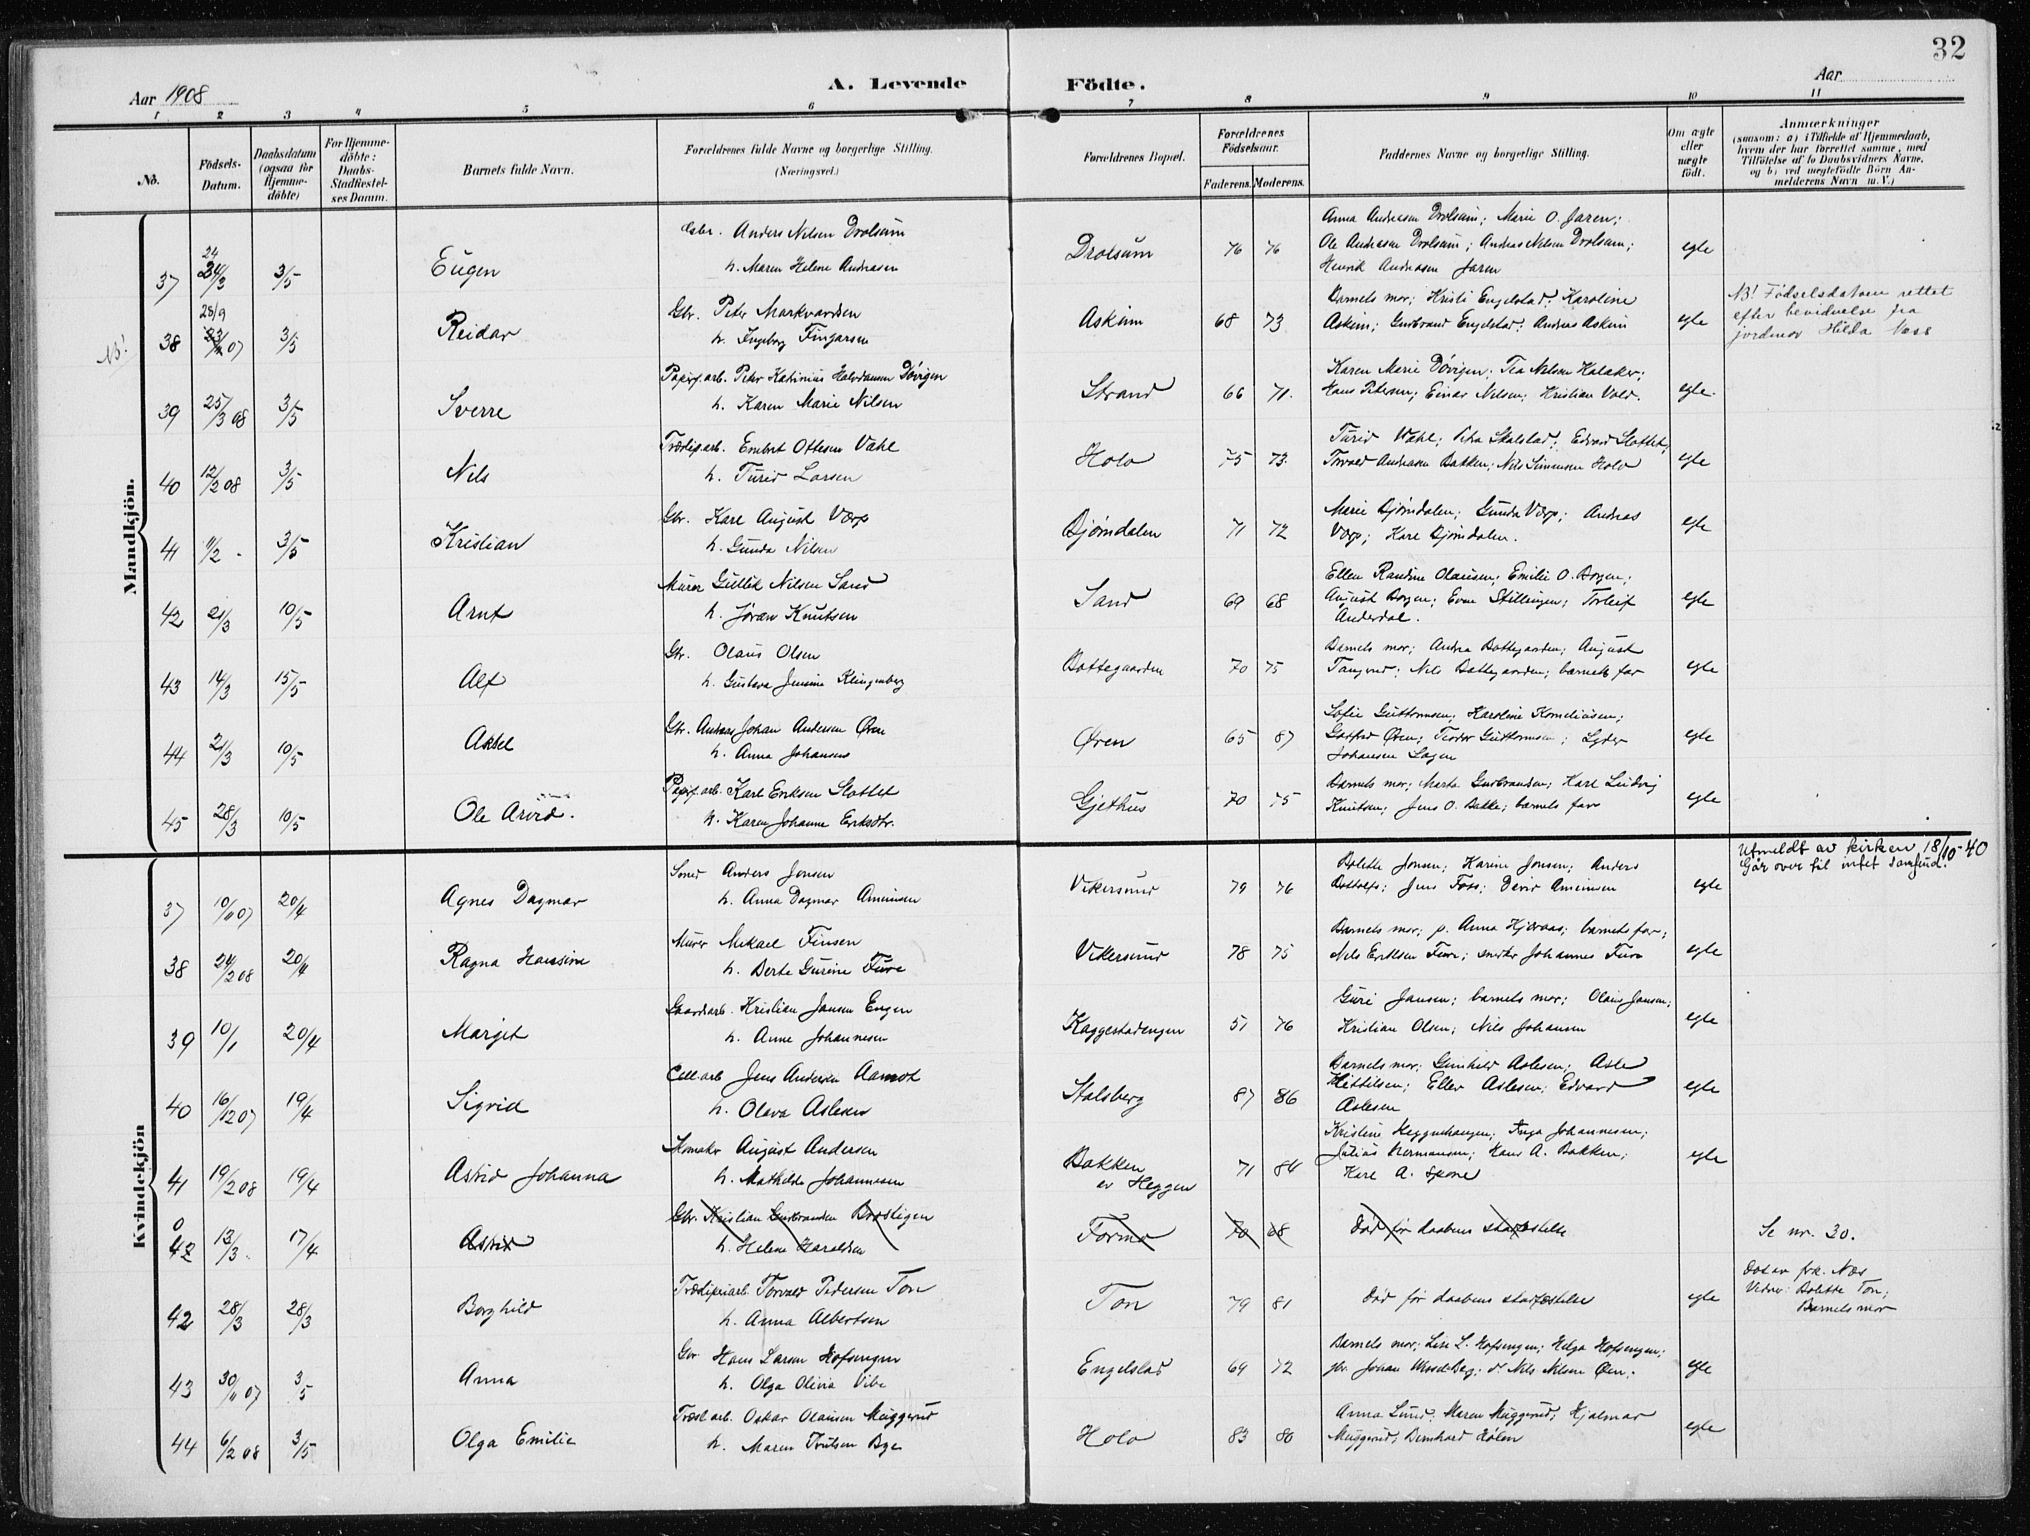 32
Aar 1908
A. Levende
Födte.
Aar
1 2 3 4 5 6 7 8 9 10 11
No.
Födsels-Datum.
Daabsdatum (ogsaa for Hjemme-döbte)
For Hjemme-döbte: Daabs-Stadfæstel-ses Datum.
Barnets fulde Navn.
Forældrenes fulde Navne og borgerlige Stilling. (Næringsvei.)
Forældrenes Bopæl.
Forældrenes Födselsaar.
Faderens. Moderens.
Faddernes Navne og borgerlige Stilling.
Om ægte eller uægte födt.
Anmærkninger
(saasom: a) i Tilfælde af Hjemmedaab, hvem der har forrettet samme, med Tilföielse af to Daabsvidners Navne, og b) ved uægtefödte Börn Anmelderens Navn m. V.)
Mandkjön.
Gbr. Anders Nilsen Drolsum
Anna Andreasen Drolsum; Marie O. Jaren;
37 24 24/3 3/5 Eugen
h. Maren Helene Andreasen
Drolsum 76 76
Ole Andreasen Drolsum; Andreas Nilsen Drolsum;
Henrik Andreasen Jaren
egte
NB! 38 23/9 07 3/5 Reidar
Gbr. Peter Markvardsen
h. Ingeborg Fingarsen
Askim 68 73
Barnets mor; Kristi Engelstad; Karoline
Askim; Gudbrand Engelstad; Andreas Askim
egte
NB! Födselsdatoen rettet
efter bevidnelse fra
jordmor Hilda Næss
39 25/3 08 3/5 Sverre
Papirf.arb. Peter Katinius Halvdansen Dövigen
h. Karen Marie Nilsen
Strand 66 71.
Karen Marie Dövigen; Tea Nilsen Kalaker;
Hans Petersen; Einar Nilsen; Kristian Vold.
egte.
40 12/2 08 3/5 Nils
Træslip.arb. Embret Ottesen Vahl
h. Turid Larsen
Holo 75 73.
Turid Vahl; Petra Skalstad; Edvard Slottet;
Torvald Andreasen Bakken; Nils Simensen Holo
egte
41 9/2 - 3/5 Kristian
Gbr. Karl August Værp
h. Gunda Nilsen
Bjørndalen 71 72
Marie Bjørndalen; Gunda Værp; Andreas
Værp; Karl Bjørndalen.
egte
42 21/3 10/5 Arnt
Murer Gullik Nilsen Sand
h. Jøran Knutsen
Sand 69 68
Ellen Randine Olausen; Emilie O. Borgen;
August Borgen; Even Skillingen; Torleif
Anderdal.
egte
43 14/3 15/5 Alf
Gbr. Olaus Olsen
h. Gustava Jensine Klingenberg
Bottegaarden 70 75
Barnets mor; Andrea Bottegaarden; August
Tangerud; Nils Bottegaarden; barnets far
egte
44 21/3 10/5 Aksel
Gbr. Andreas Johan Andersen Øren
h. Anna Johansen
Øren 65 87
Sofie Guttormsen; Karoline Korneliusen;
Gotfred Øren; Teodor Guttormsen; Lyder
Johansen Lagen
egte
45 28/3 10/5 Ole Arvid.
Papirf.arb. Karl Eriksen Slottet
h. Karen Johanne Eriksdtr.
Gjethus 70 75
Barnets mor; Marte Gudbrandsen; Karl Ludvig
Knutsen; Jens O. Bakke; barnets far
egte
Kvindekjön
37 10/11 07 20/4 Agnes Dagmar
Smed Anders Jensen
h. Anna Dagmar Amundsen
Vikersund 79 76
Bolette Jonsen; Karine Jonsen; Anders
Bottolfs; Jens Foss; Amundsen
egte
Utmeldt av kirken 18/10-40
Går over til intet samfund.
38 24/2 08 20/4 Ragna Hansine
Murer Mikael Finsen
h. Berte Gurine Fure
Vikersund 78 75
Barnets mor; p. Anna Kjøraas; barnets far;
Nils Eriksen Fure; snekker Johannes Fure
egte
39 10/1 20/4 Margit
Gaardsarb. Kristian Jansen Engen
h. Anne Johannesen
Kaggestadengen 51 76
Guri Jansen; barnets mor; Olaus Jansen;
Kristian Olsen; Nils Johansen
egte
40 16/12 07 19/4 Sigrid
Cell.arb Jens Andersen Aamot
h. Olava Aslesen
Stalsberg 87 86
Barnets mor; Gunhild Aslesen; Asle
Kittilsen; Ellev Aslesen; Edvard
Aslesen
egte
41 19/2 08 19/4 Astrid Johanna
Skomaker August Andersen
h. Mathilde Johannesen
Bakken
av Heggen
71 84
Kristine Heggenhaugen; Inga Johannesen;
Julius Hermansen; Hans A. Bakken;
Karl A. Spone
egte
0 42 13/3 - 17/4 Astrid
Gbr. Kristian Gudbrandsen Bræstigen
h. Helene Haraldsen
Formo 70 68
Død før daabens stadfæstelse
Se nr. 30.
42 28/3 28/3 Borghild
Træsliperiarb. Torvald Pedersen Ton
h. Anna Albertsen
Ton 79 81
Død før daabens stadfæstelse
egte
Døbt av frk. Næss
Vidner: Bolette Ton;
Barnets mor
43 30/11 07 3/5 Anna
Gbr Hans Larsen Hofsengen
h. Olga Olivia Vibe
Engelstad 69 72
Barnets mor; Lise L. Hofsengen; Helga Hofsengen;
gbr. Johan Berg; d° Nils Nilsen Øen.
egte
44 6/2 08 3/5 Olga Emilie
Træsl.arb. Oskar Olausen Muggerud
h. Maren Poulsen Bye
Holo 83 80
Anna Lund; Maren Muggerud; Hjalmar
Muggerud; Bernhard Holen
egte